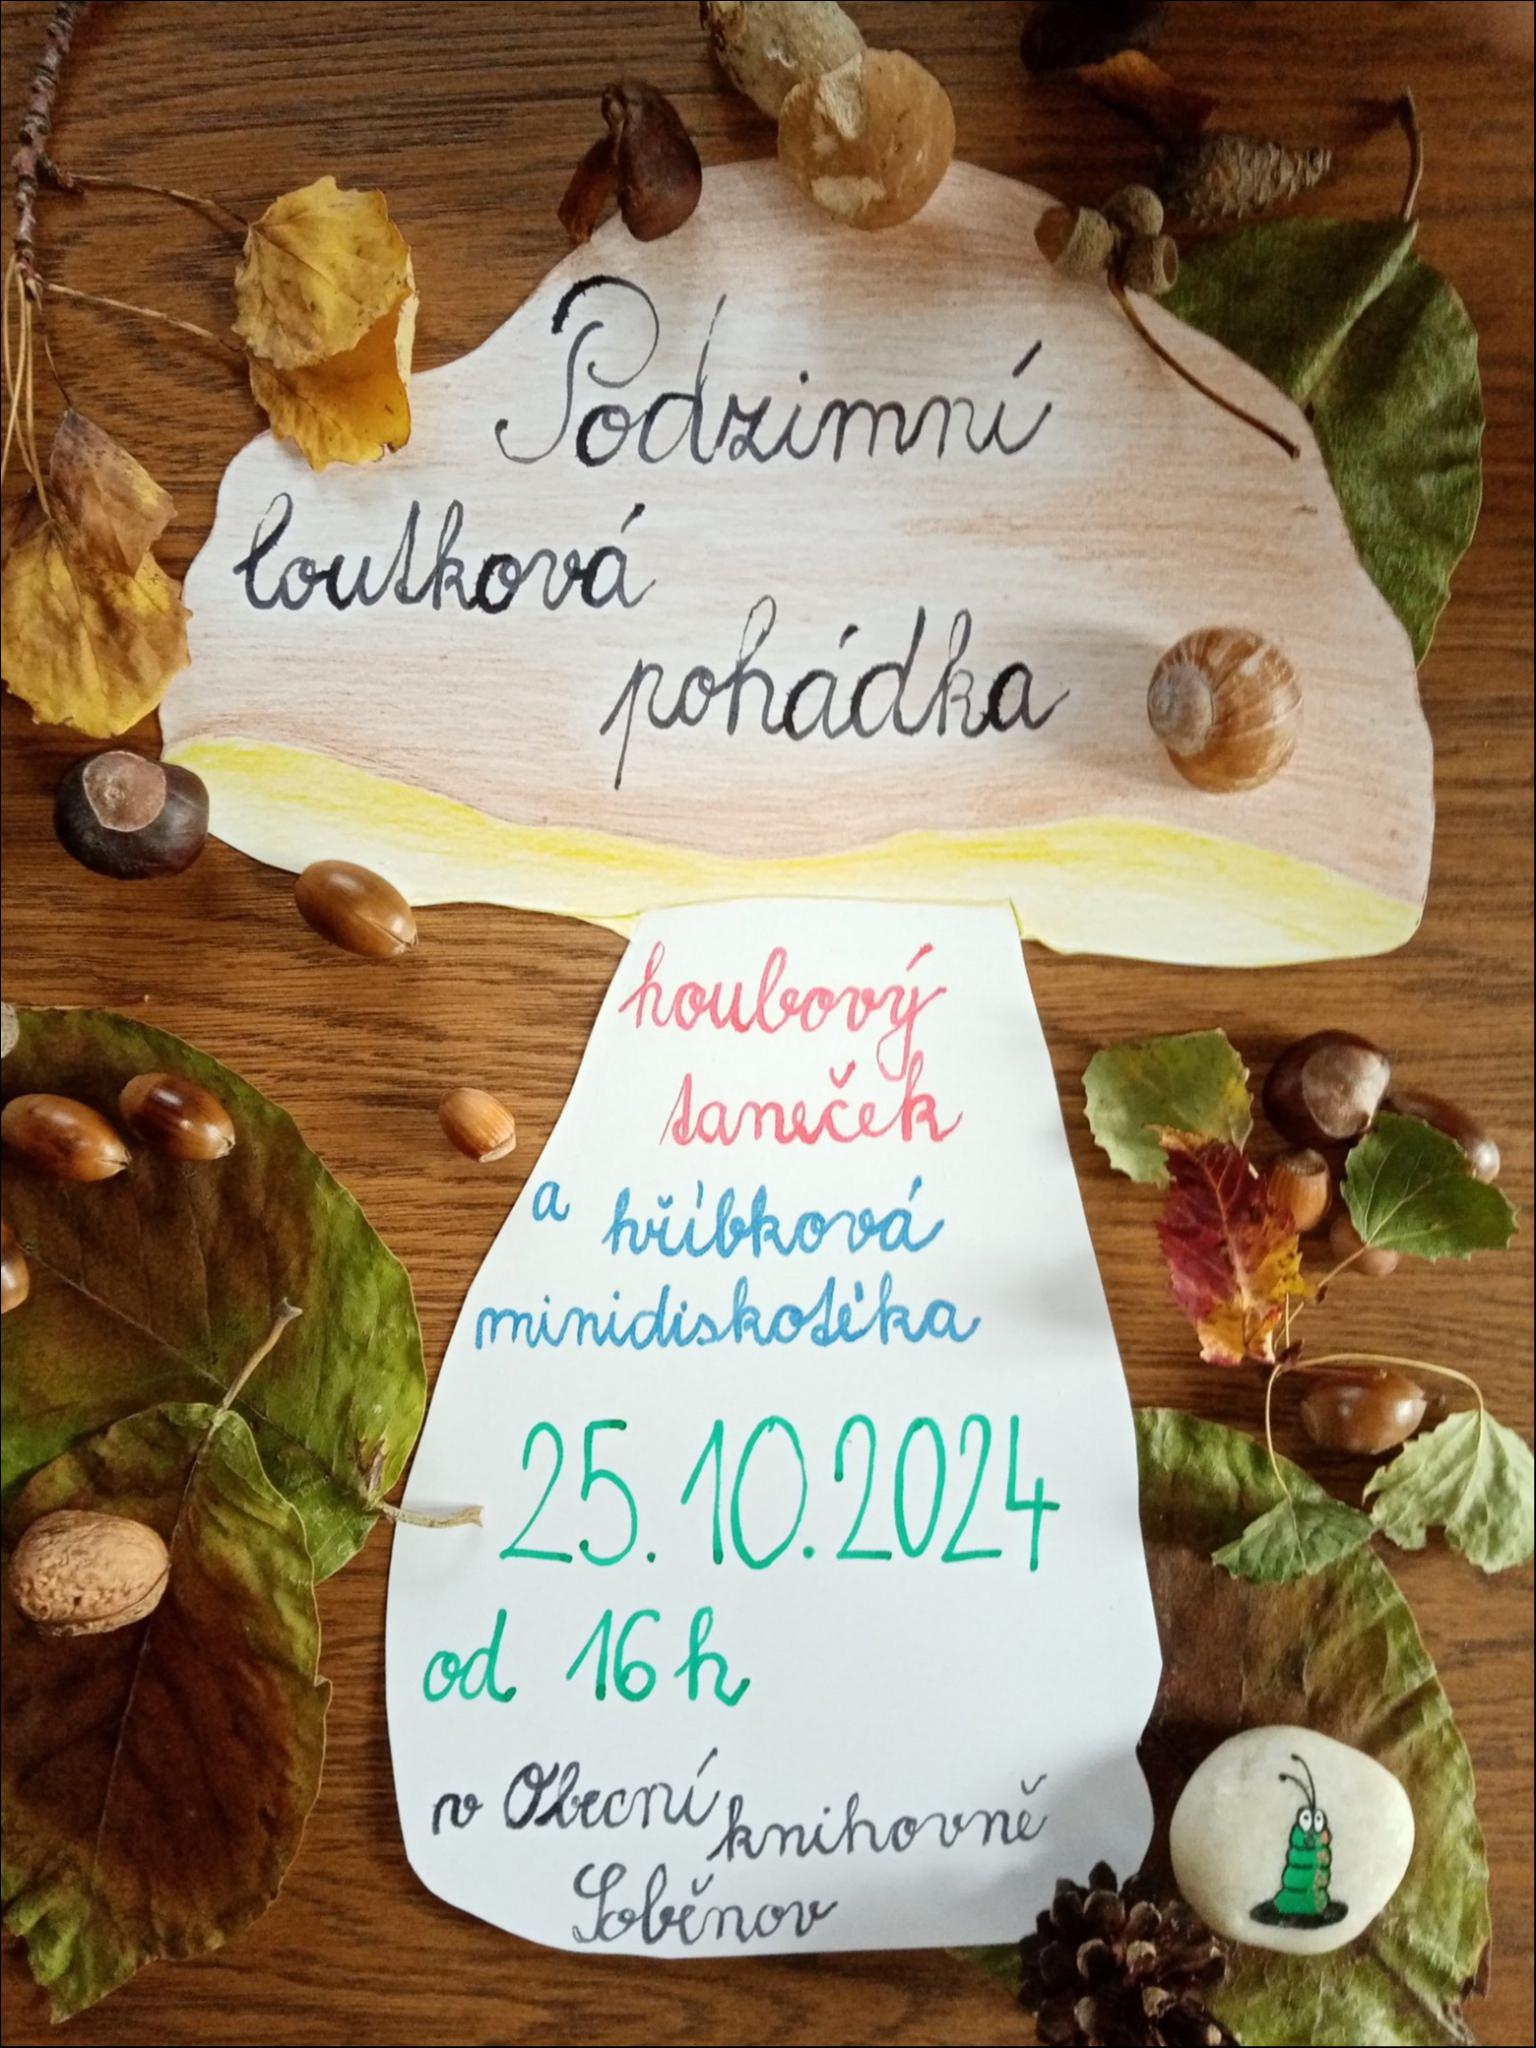 Podzimní
loutková
pohádka
houbový
taneček
a hříbková
minidiskotéka
25.10.2024
od 16 h
v Obecní knihovně
Soběnov